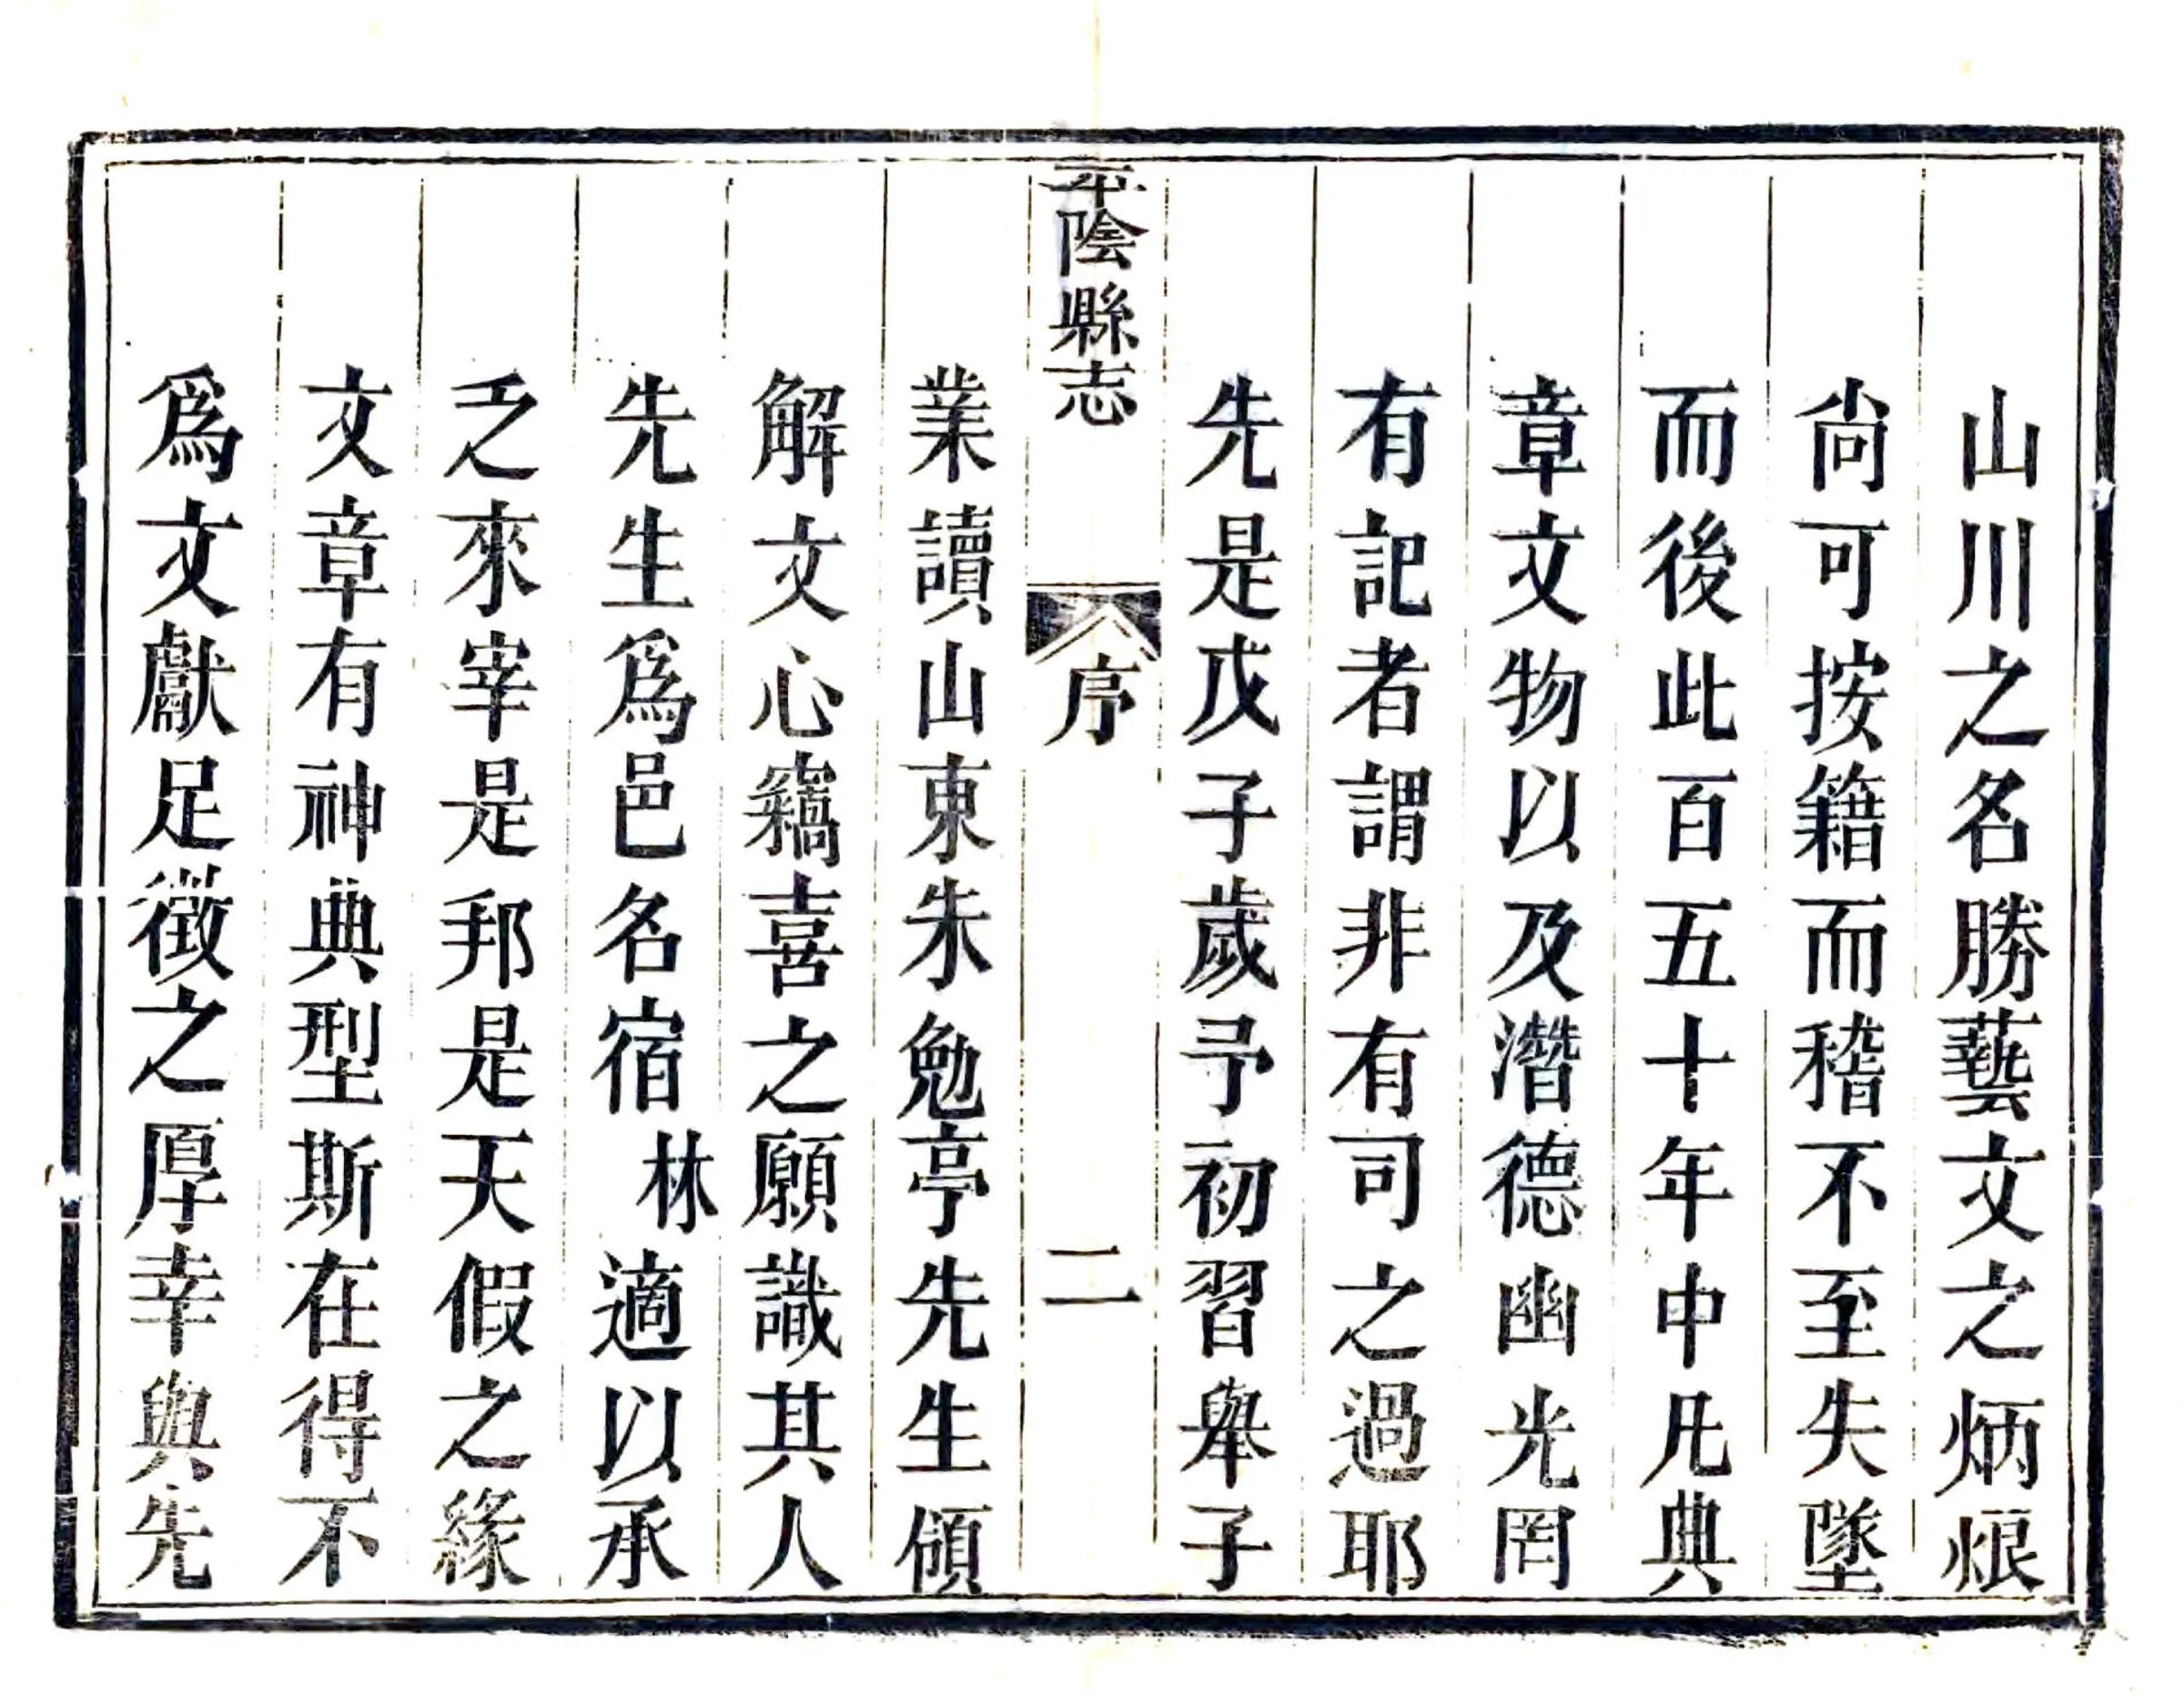 山川之名勝藝文之炳烺
尙可按籍而稽不至失墜
而後此百五十年中凡典
章文物以及潛德幽光罔
有記者謂非有司之過耶
先是戊子歲予初習舉子
平陰縣志 序 二
業讀山東朱勉亭先生傾
解文心竊喜之願識其人
先生爲邑名宿林適以承
乏來宰是邦是天假之緣
文章有神典型斯在得不
爲文獻足徵之厚幸與先